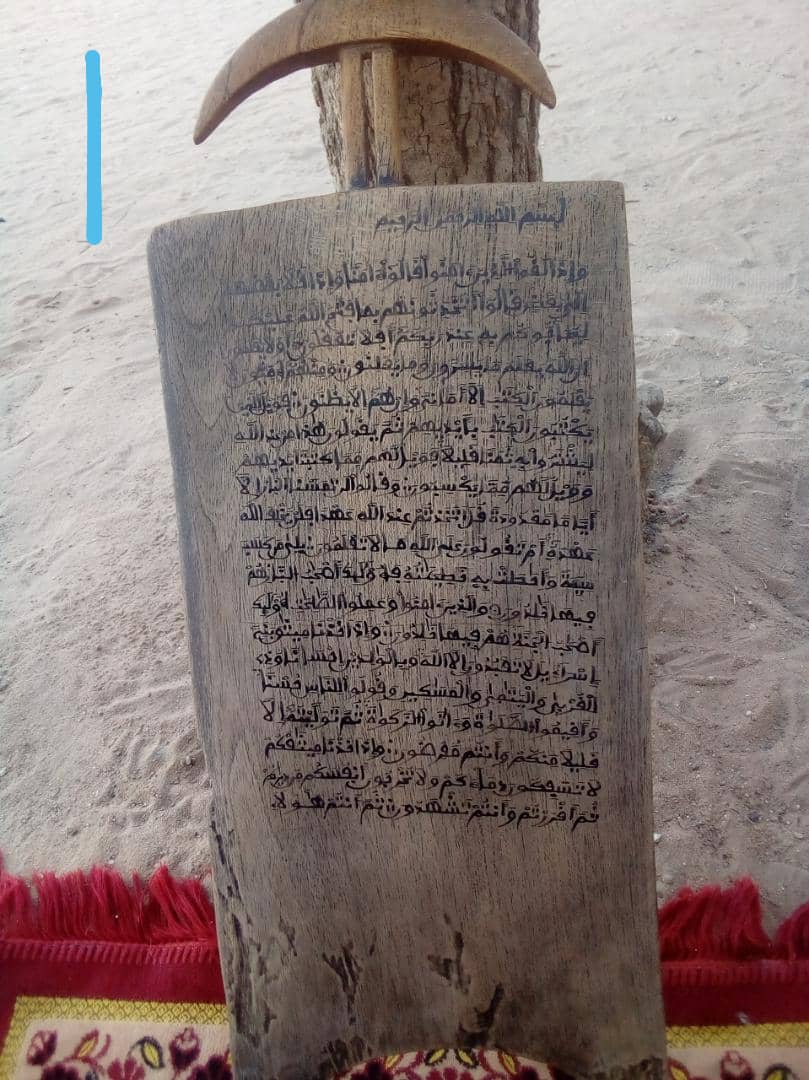 بسم الله الرحمن الرحيم
وإذا لقوا الذين ءامنوا قالوا ءامنا وإذا خلا بعضهم
قالوا أتحدثونهم بما فتح الله عليكم
ليحاجوكم به عند ربكم أفلا تعقلون أولا يعلمون
أن الله يعلم ما يسرون وما يعلنون ومنهم أميون لا
يعلمون الكتب إلا أماني وإن هم إلا يظنون فويل للذين
يكتبون الكتب بأيديهم ثم يقولون هذا من عند الله
ليشتروا به ثمنا قليلا فويل لهم مما كتبت أيديهم
وويل لهم مما يكسبون وقالوا لن تمسنا النار إلا
أياما معدودة قل أتخذتم عند الله عهدا فلن يخلف الله
عهده أم تقولون على الله ما لا تعلمون بلى من كسب
سيئة وأحطت به خطيئته فأوليك أصحب النار هم
فيها خلدون والذين ءامنوا وعملوا الصلحت أوليك
أصحب الجنة هم فيها خلدون وإذ اخذنا ميثق بني
إسراءيل لا تعبدون إلا الله وبالولدين إحسانا وذي
القربى واليتمى والمسكين وقولوا للناس حسنا
وأقيموا الصلوة وءاتوا الزكوة ثم توليتم إلا
قليلا منكم وأنتم معرضون وإذ اخذنا ميثقكم
لا تسفكون دماءكم ولا تخرجون أنفسكم من ديركم
ثم أقررتم وأنتم تشهدون ثم أنتم هؤلا